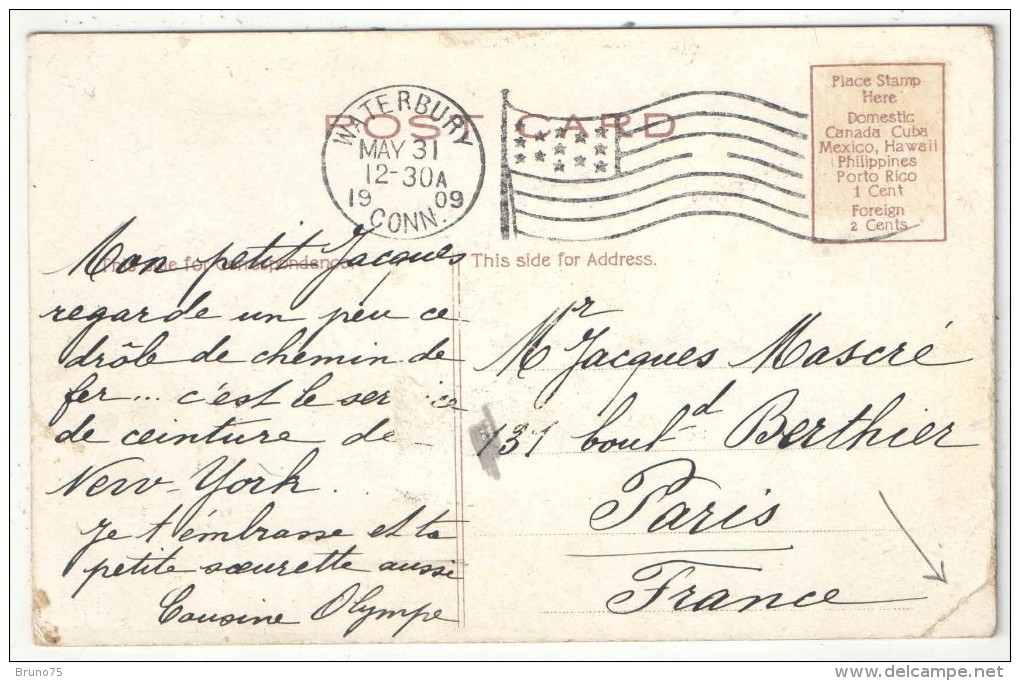 POST CARD
WATERBURY
MAY 31
12-30A
19 09
CONN.
Place Stamp
Here
Domestic
Canada Cuba
Mexico, Hawaii
Philippines
Porto Rico
1 Cent
Foreign
2 Cents
This side for Correspondence.
This side for Address.
Mon petit Jacques
regarde un peu ce
drôle de chemin de
fer... c'est le service
de ceinture de
New-York.
Je t'embrasse et ta
petite sœurette aussi
Cousine Olympe
Mr Jacques Mascré
131 boul-d Berthier
Paris
France
Bruno75
www.delcampe.net